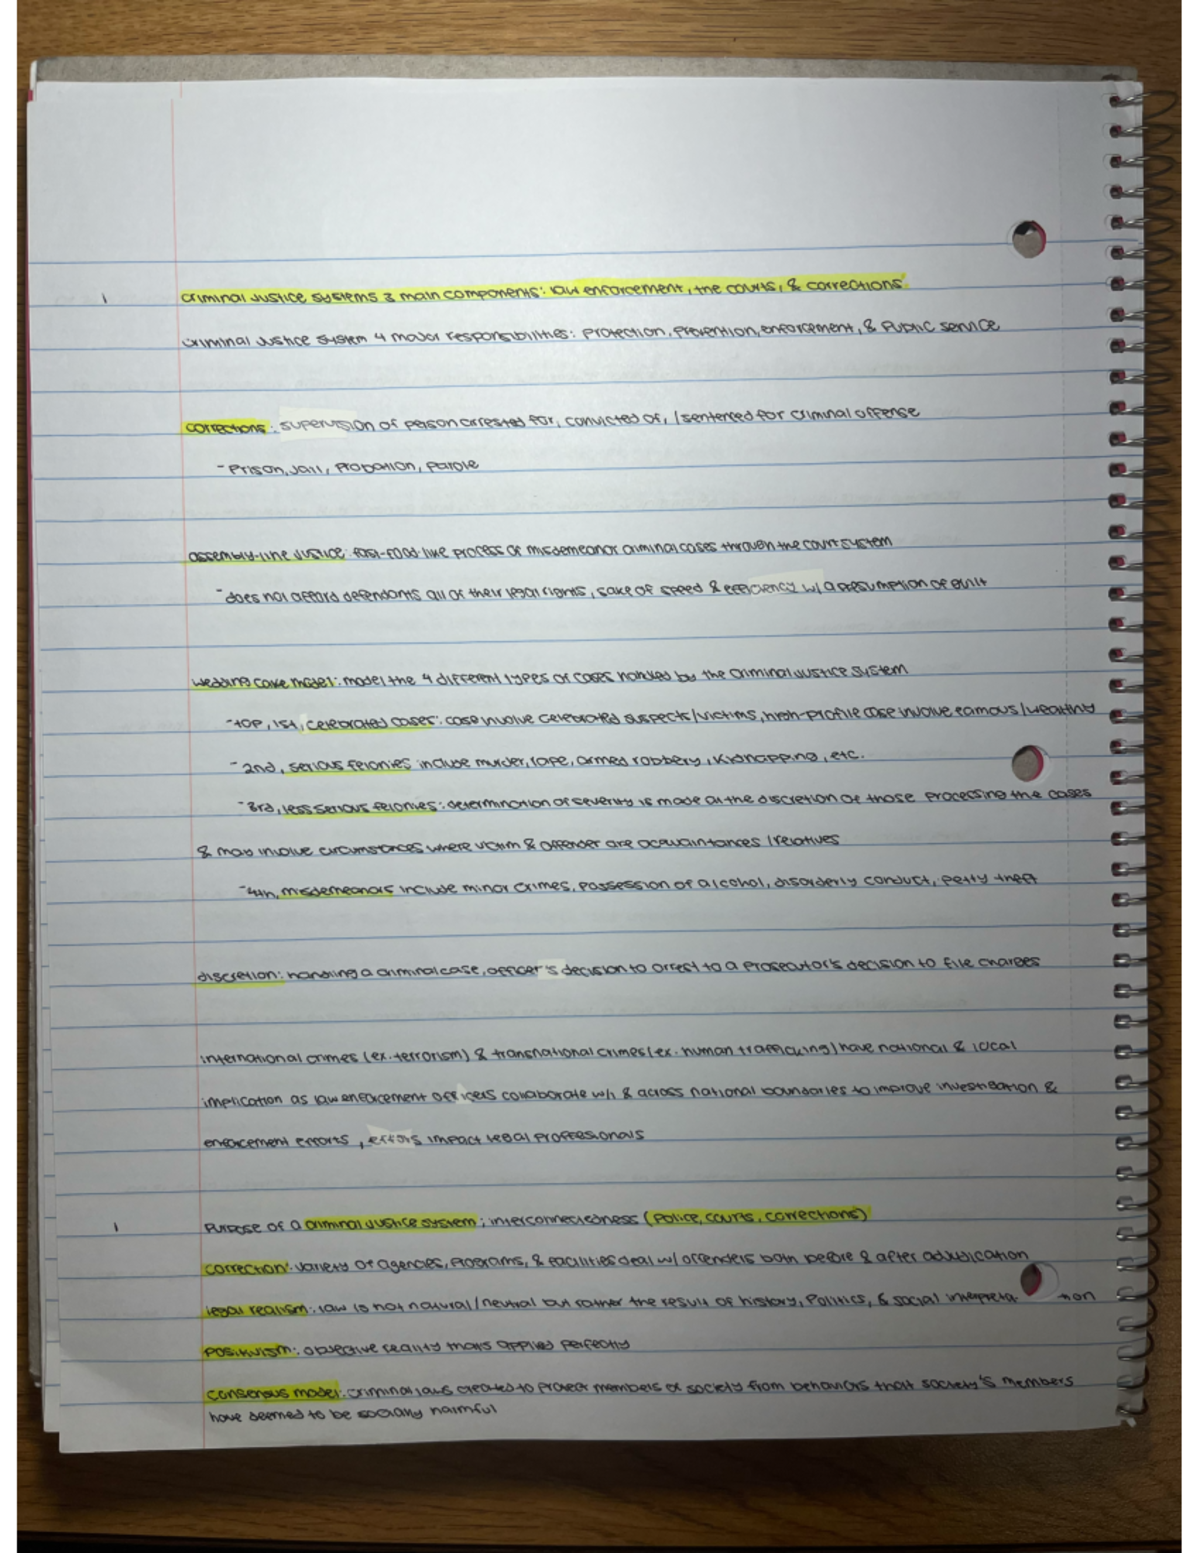 criminal justice systems 3 main components: law enforcement, the courts, & corrections
criminal justice system 4 major responsibilities: protection, prevention, enforcement, & public service
corrections: supervision of person arrested for, convicted of, /sentenced for criminal offense
- prison, jail, probation, parole
assembly-line justice: fast-food like process of misdemeanor criminal cases through the court system
- does not afford defendants all of their legal rights, sake of speed & efficiency w/ a presumption of guilt
wedding cake model: model the 4 different types of cases handled by the criminal justice system
- top, 1st, celebrated cases: case involve celebrated suspects/victims, high-profile case involve famous/wealthy
- 2nd, serious felonies include murder, rape, armed robbery, kidnapping, etc.
- 3rd, less serious felonies: determination of severity is made at the discretion of those processing the cases
& may involve circumstances where victim & offender are acquaintances/relatives
- 4th, misdemeanors include minor crimes, possession of alcohol, disorderly conduct, petty theft
discretion: handling a criminal case, officer's decision to arrest to a prosecutor's decision to file charges
international crimes (ex. terrorism) & transnational crimes (ex. human trafficking) have national & local
implication as law enforcement officers collaborate w/i & across national boundaries to improve investigation &
enforcement efforts, efforts impact legal professionals
purpose of a criminal justice system; interconnectedness (police, courts, corrections)
correction: variety of agencies, programs, & facilities deal w/ offenders both before & after adjudication
legal realism: law is not natural/neutral but rather the result of history, politics, & social interpretation
positivism: objective reality thats applied perfectly
consensus model: criminal laws created to protect members of society from behaviors that society's members
have deemed to be socially harmful